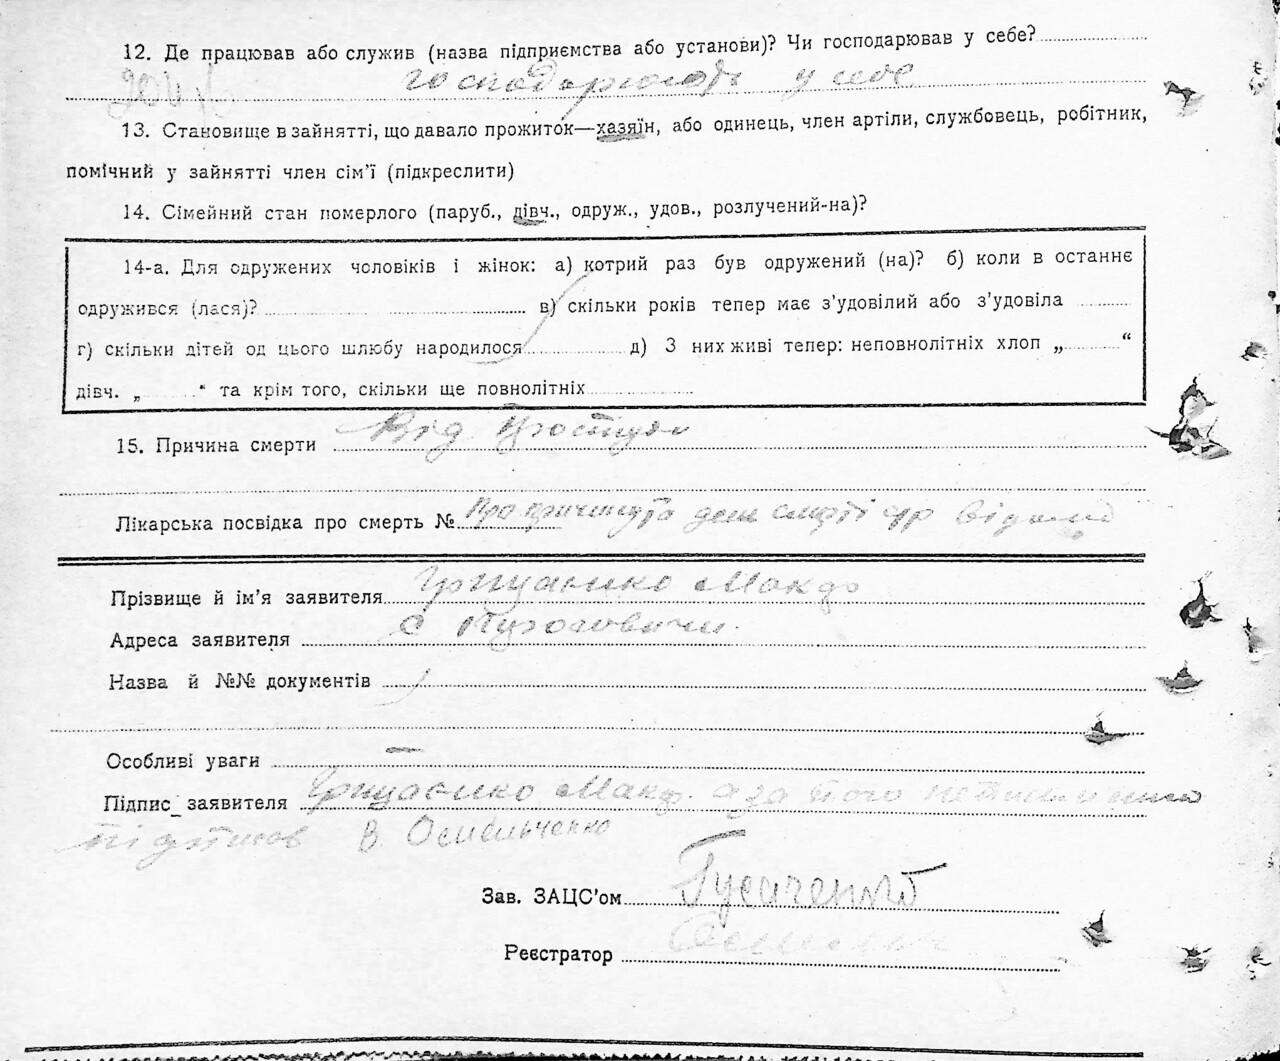 12. Де працював або служив (назва підприємства або установи)? Чи господарював у себе?
господарював у себе
13. Становище в зайнятті, що давало прожиток—хазяїн, або одинець, член артілі, службовець, робітник,
помічний у зайнятті член сім'ї (підкреслити)
14. Сімейний стан померлого (паруб., дівч., одруж., удов., розлучений-на)?
14-а. Для одружених чоловіків і жінок: а) котрий раз був одружений (на)? б) коли в останнє
одружився (лася)? в) скільки років тепер має з'удовілий або з'удовіла
г) скільки дітей од цього шлюбу народилося д) З них живі тепер: неповнолітніх хлоп „ “
дівч. „ “ та крім того, скільки ще повнолітніх
15. Причина смерти Від Простуди
Лікарська посвідка про смерть № Про причину та день смерті відомо
Прізвище й ім'я заявителя Грицаенко Макар
Адреса заявителя с
Назва й №№ документів
Особливі уваги —
Підпис заявителя Грицаенко Макар. а за його неписьменного
підписав В. Омельченко
Зав. ЗАЦС'ом Гусаченко
Реєстратор